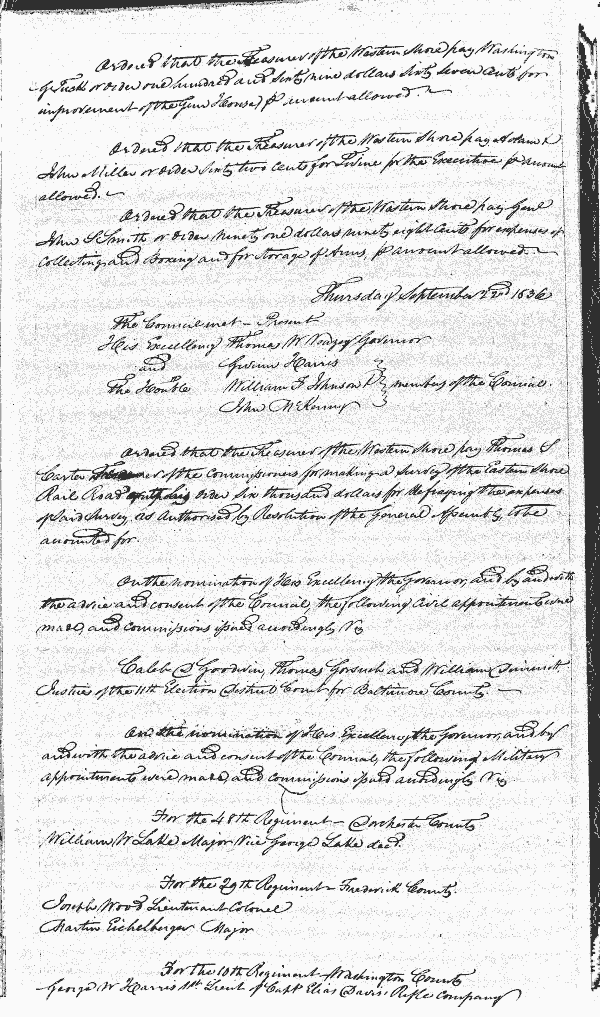 Ordered that the Treasurer of the Western Shore pay Washington
G Tuck or order one hundred and sixty nine dollars sixty seven cents for
improvement of the Govt House, pr amount allowed
Ordered that the Treasurer of the Western Shore pay Adam &
John Miller or order sixty two cents for Twine for the Executive pr amount
allowed.
Ordered that the Treasurer of the Western Shore pay Genl
John S Smith or order ninety one dollars ninety eight Cents for expenses of
Collecting and Boxing and for storage of Arms, pr amount allowed.
Thursday September 22nd 1836
The Council met – Present
His Excellency Thomas W Veazey Governor
and Gwinn Harris
the Honble William F Johnson & members of the Council.
John McKenney
Ordered that the Treasurer of the Western Shore pay Thomas S
Carter of the Commissioners for making a Survey of the Eastern Shore
Rail Road order Six thousand dollars for defraying the expenses
of said Survey, as Authorised by Resolution of the General Assembly, to be
accounted for.
On the nomination of His Excellency the Governor, and by and with
the advice and consent of the Council, the following Civil appointments were
made, and commissions issued accordingly Viz
Caleb D Goodwin, Thomas Gorsuch and William
Justices of the 11th Election District Court for Baltimore County. —
On the nomination of His Excellency the Governor, and by
and with the advice and consent of the Council, the following Military
appointments were made, and commissions issued accordingly Viz
For the 48th Regiment – Dorchester County
William W Lake Major Vice George Lake decd.
For the 29th Regiment – Frederick County.
Joseph Wood Lieutenant Colonel
Martin Eichelberger Major
For the 10th Regiment – Washington County
George W Harris 1st Lieut of Capt Elias Davis's Rifle Company